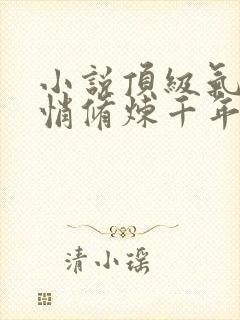 小說頂級氣
悄脩煉千年
清小瑤